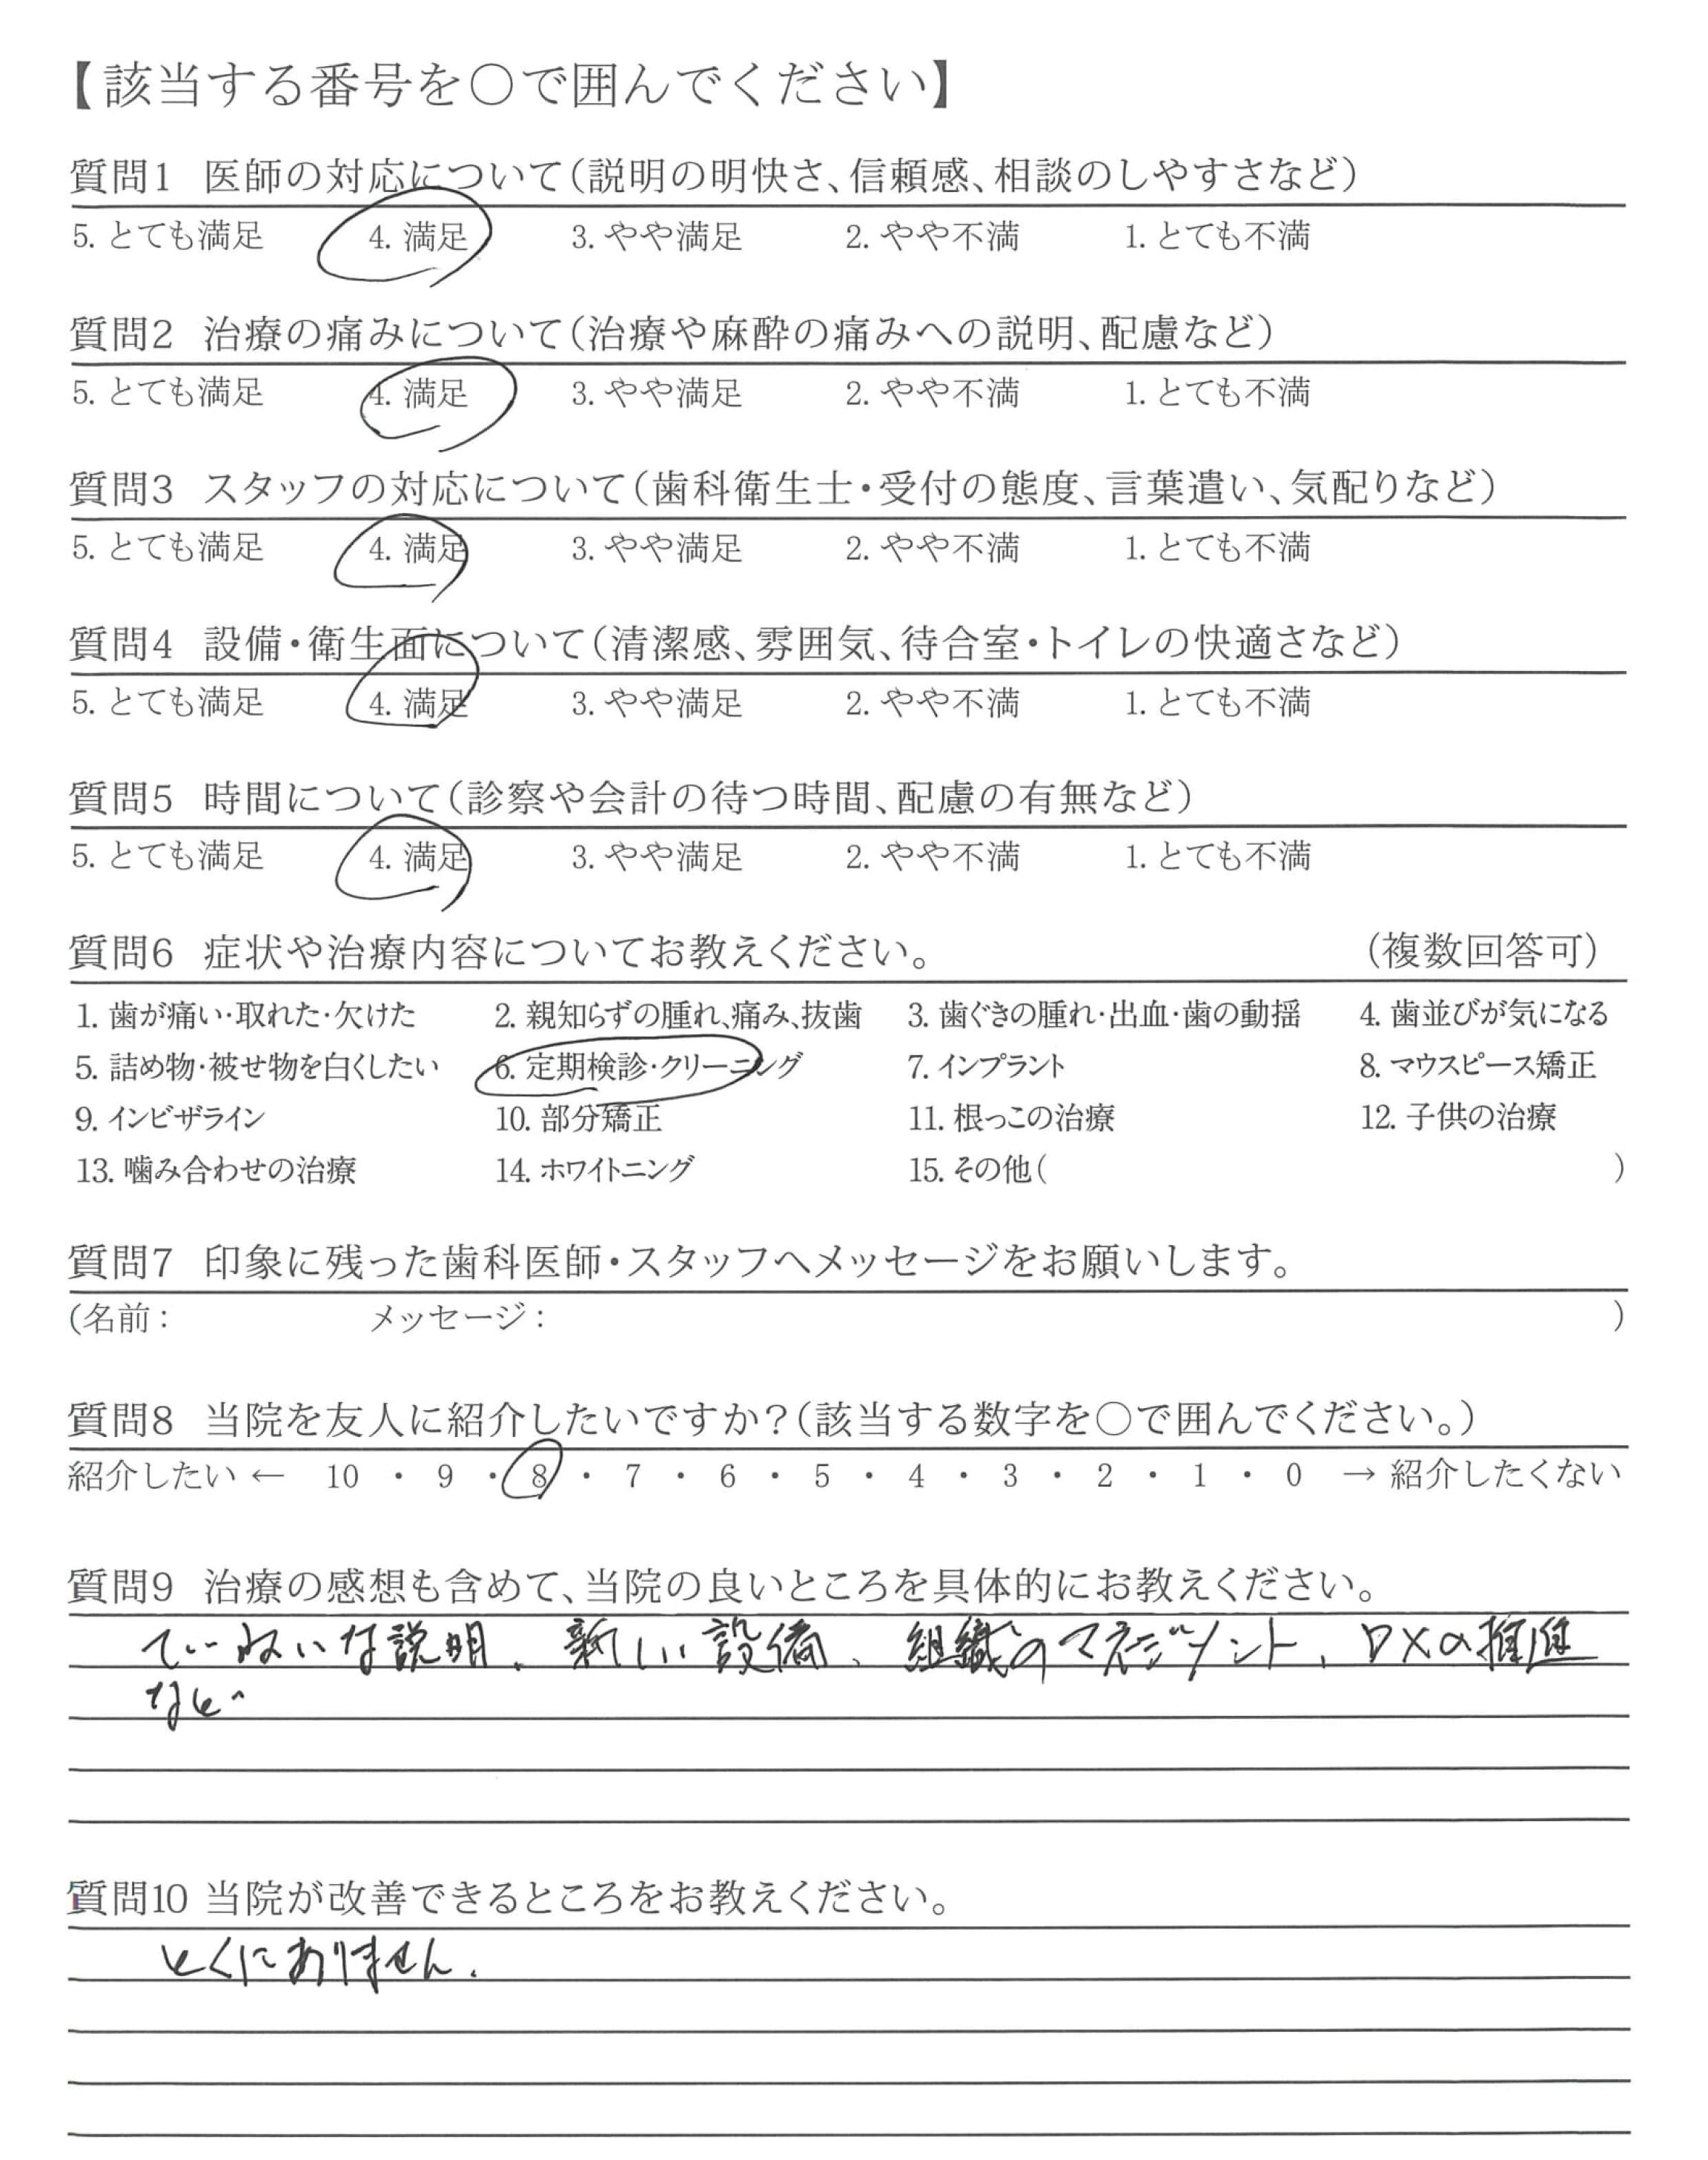 【該当する番号を○で囲んでください】
質問1 医師の対応について(説明の明快さ、信頼感、相談のしやすさなど)
5. とても満足 4. 満足 3. やや満足 2. やや不満 1. とても不満
質問2 治療の痛みについて(治療や麻酔の痛みへの説明、配慮など)
5. とても満足 4. 満足 3. やや満足 2. やや不満 1. とても不満
質問3 スタッフの対応について(歯科衛生士・受付の態度、言葉遣い、気配りなど)
5. とても満足 4. 満足 3. やや満足 2. やや不満 1. とても不満
質問4 設備・衛生面について(清潔感、雰囲気、待合室・トイレの快適さなど)
5. とても満足 4. 満足 3. やや満足 2. やや不満 1. とても不満
質問5 時間について(診察や会計の待つ時間、配慮の有無など)
5. とても満足 4. 満足 3. やや満足 2. やや不満 1. とても不満
質問6 症状や治療内容についてお教えください。 (複数回答可)
1. 歯が痛い・取れた・欠けた 2. 親知らずの腫れ、痛み、抜歯 3. 歯ぐきの腫れ・出血・歯の動揺 4. 歯並びが気になる
5. 詰め物・被せ物を白くしたい 6. 定期検診・クリーニング 7. インプラント 8. マウスピース矯正
9. インビザライン 10. 部分矯正 11. 根っこの治療 12. 子供の治療
13. 噛み合わせの治療 14. ホワイトニング 15. その他( )
質問7 印象に残った歯科医師・スタッフへメッセージをお願いします。
(名前： メッセージ： )
質問8 当院を友人に紹介したいですか？(該当する数字を○で囲んでください。)
紹介したい ← 10 ・ 9 ・ 8 ・ 7 ・ 6 ・ 5 ・ 4 ・ 3 ・ 2 ・ 1 ・ 0 → 紹介したくない
質問9 治療の感想も含めて、当院の良いところを具体的にお教えください。
ていねいな説明、新しい設備、組織のマネジメント、DXの推進
など
質問10 当院が改善できるところをお教えください。
とくにありません.